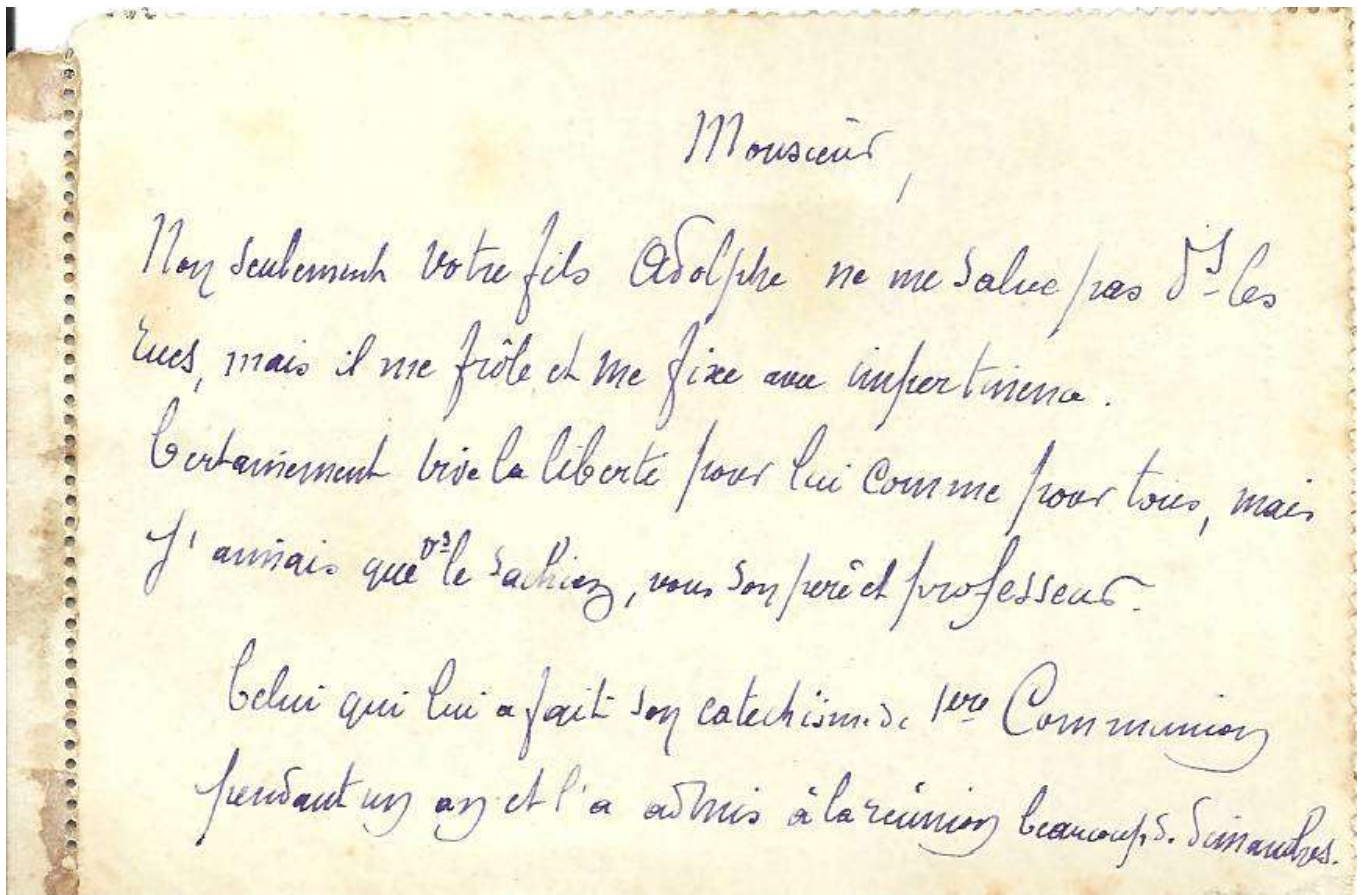 Monsieur,
Non seulement votre fils Adolphe ne me salue pas ds les
rues, mais il me frôle et me fixe avec impertinence.
Certainement vive la liberté pour lui comme pour tous, mais
j'aimais que vs le sachiez, vous son père et professeur.
Celui qui lui a fait son catechisme de 1ere Communion
pendant un an et l'a admis à la réunion beaucoup de dimanches.